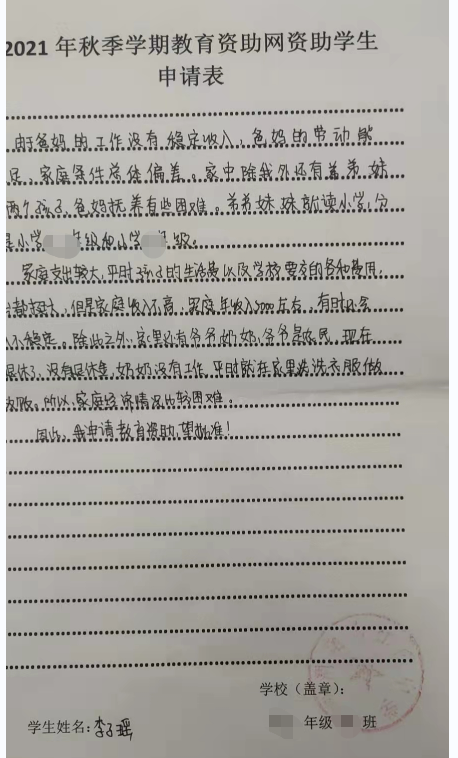 2021年秋季学期教育资助网资助学生
申请表
由于爸妈的工作没有稳定收入,爸妈的劳动能
足,家庭条件总体偏差。家中除我外还有着弟妹
两个孩子,爸妈抚养有些困难。弟弟妹妹就读小学,分
是小学 年级和小学 年级。
家庭支出较大,平时孩子的生活费以及学校要交的各种费用,
都超大,但是家庭收入不高,家庭年收入5000左右,有时还会
入不稳定。除此之外,家里还有爷爷奶奶,爷爷是农民,现在
退休了,没有退休金,奶奶没有工作,平时就在家里洗洗衣服做
做饭。所以,家庭经济情况比较困难。
因此,我申请教育资助,望批准!
学校(盖章):
年级 班
学生姓名:李子瑶